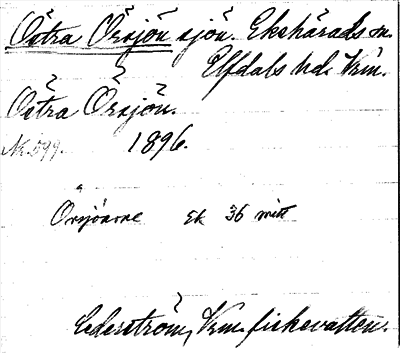 Östra Örsjön sjön. Ekshärads sn.
Elfdals hd. Vrm.
Östra Örsjön.
Nr. 599. 1896.
Örsjöarne ek 36 mitt
Cederström, Vrm. fiskevatten.